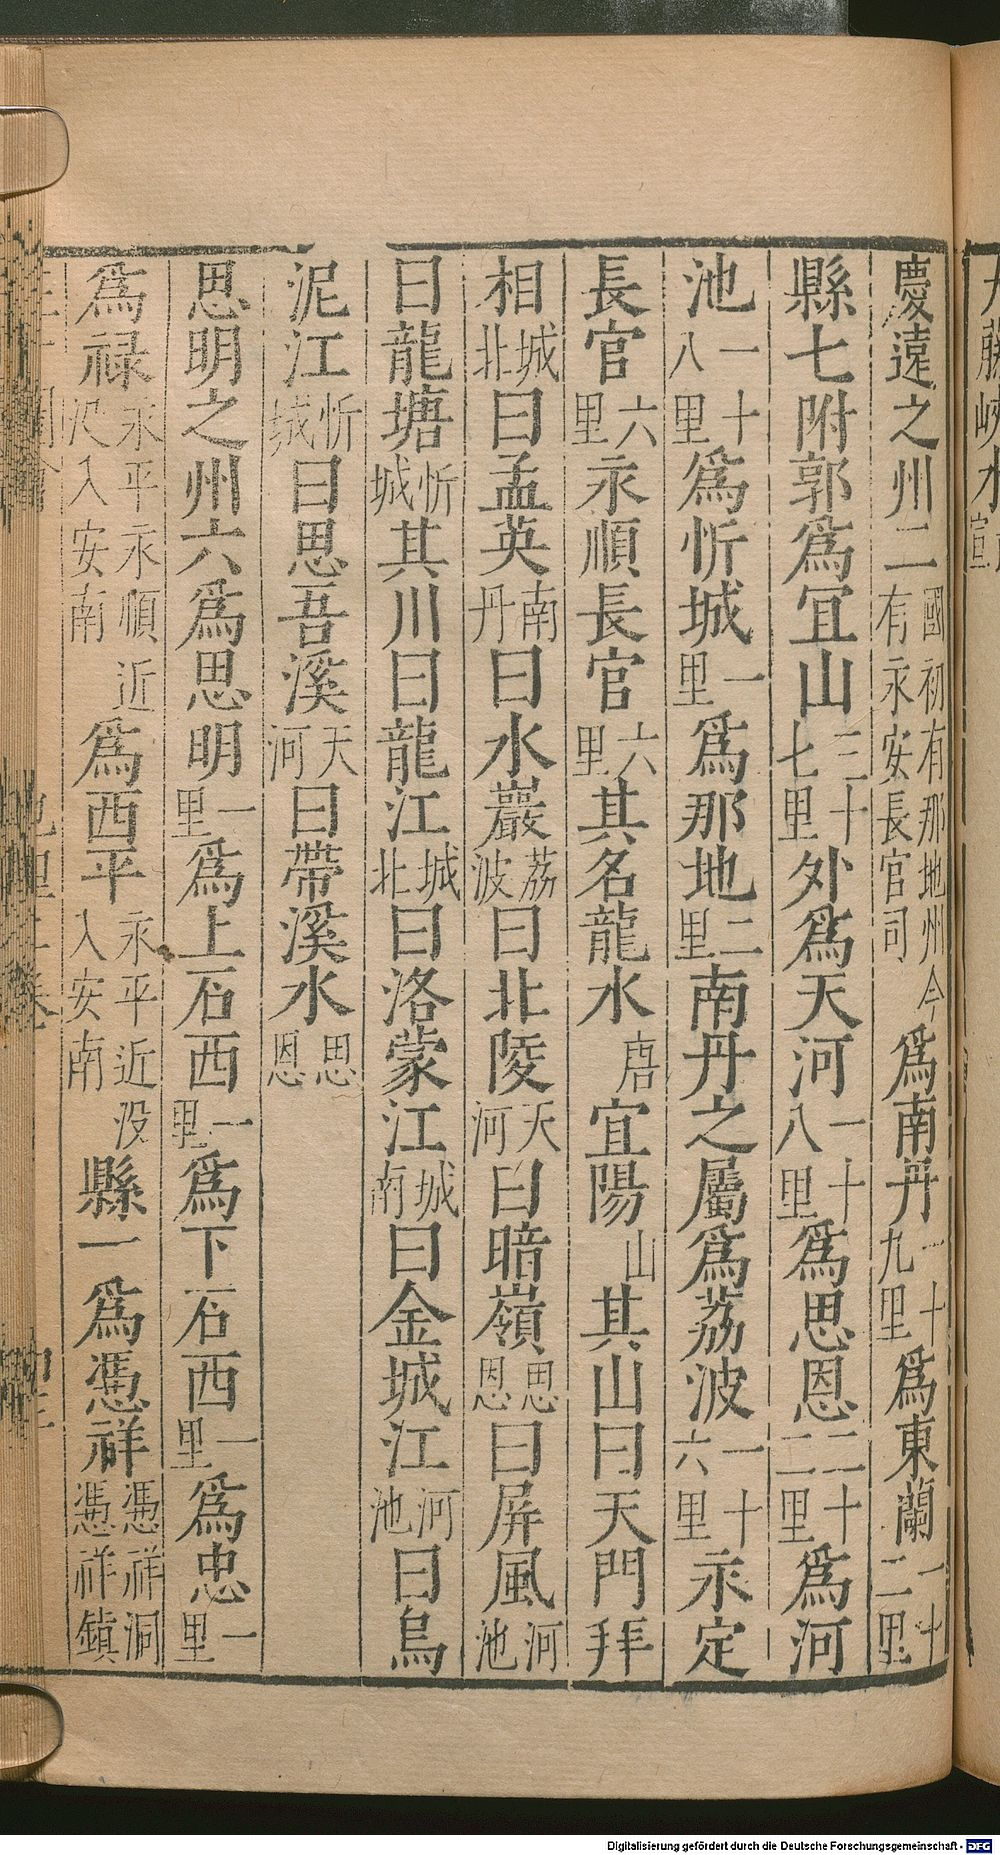 慶遠之州二國初有那地州今有永安長官司為南丹一十九里為東蘭一十二里
縣七附郭為宜山三十七里外為天河一十八里為思恩二十二里為河
池一十八里為忻城一里為那地二里南丹之屬為荔波一十六里永定
長官六里永順長官六里其名龍水唐宜陽山其山曰天門拜
相城北曰孟英南丹曰水巖荔波曰北陵天河曰暗嶺思恩曰屏風河池
曰龍塘忻城其川曰龍江城北曰洛蒙江城南曰金城江河池曰烏
泥江忻城曰思吾溪天河曰帶溪水思恩
思明之州六為思明一里為上石西一里為下石西一里為忠一里
為禄永平永順近沒入安南為西平永平近沒入安南縣一為憑祥憑祥洞憑祥鎮
Digitalisierung gefördert durch die Deutsche Forschungsgemeinschaft - DFG